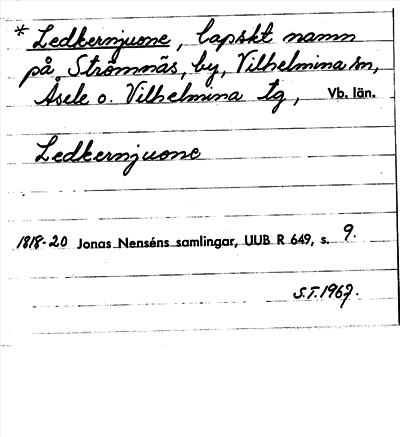 * Ledkernjuone, lapskt namn
på Strömnäs, by, Vilhelmina sn,
Åsele o. Vilhelmina tg, Vb. län.
Ledkernjuone
1818-20 Jonas Nenséns samlingar, UUB R 649, s. 9.
S.T. 1967.